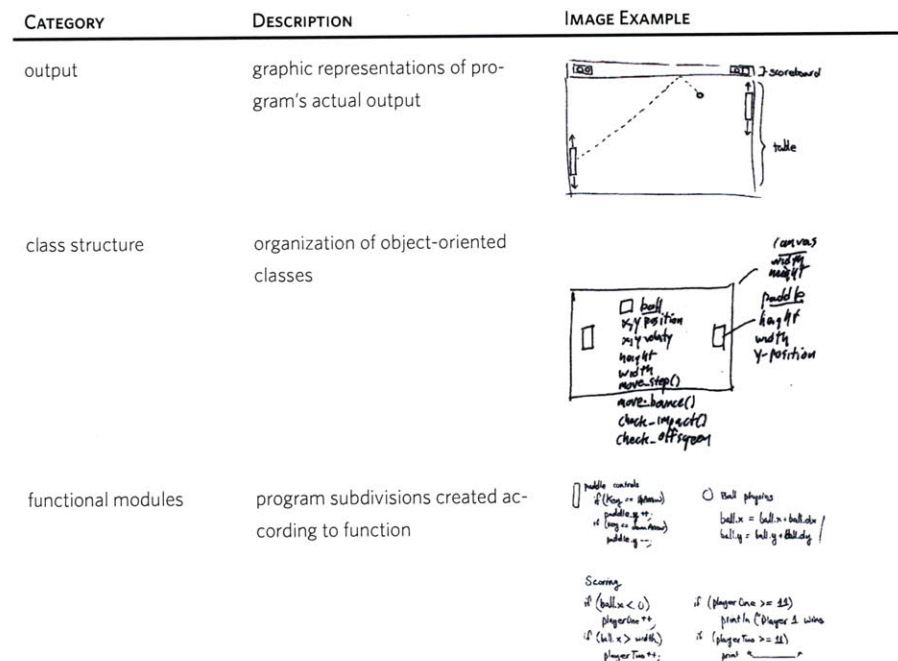 CATEGORY DESCRIPTION IMAGE EXAMPLE
output
graphic representations of pro-
gram's actual output
scoreboard
table
class structure
organization of object-oriented
classes
canvas
width
height
paddle
height
width
y-position
ball
x,y position
x,y velocity
height
width
move_step()
move_bounce()
check_impact()
check_offscreen
functional modules
program subdivisions created ac-
cording to function
paddle controls
if (Key == UpArrow)
paddle.y ++;
if (key == downArrow)
paddle.y --;
Ball physics
ball.x = ball.x + ball.dx
ball.y = ball.y + ball.dy
Scoring
if (ball.x < 0)
playerOne ++;
if (ball.x > width)
playerTwo ++;
if (playerOne >= 11)
println ("Player 1 wins
if (playerTwo >= 11)
print "